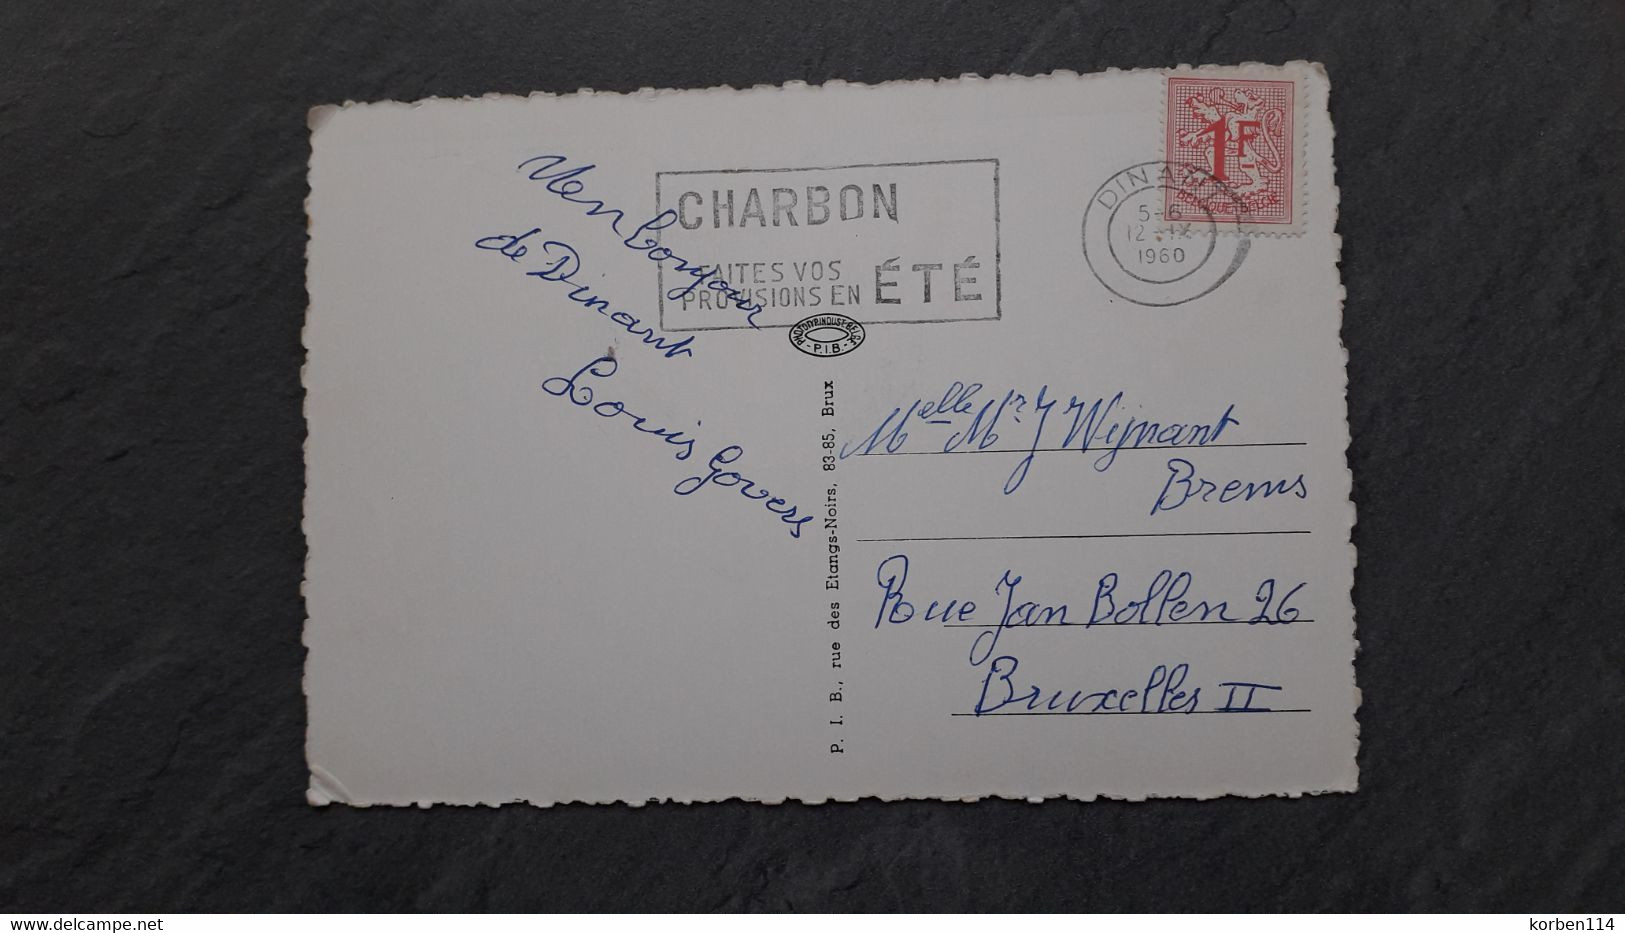 CHARBON
FAITES VOS
PROVISIONS EN ÉTÉ
DINANT
5-6
12-IX
1960
1F
BELGIQUE-BELGIE
Uen bonjour
de Dinant
Louis Govers
PHOTOTYP.INDUST.BELGE
- P.I.B. -
P. I. B., rue des Etangs-Noirs, 83-85, Brux
Melle Mr J Wijnant
Brems
Rue Jan Bollen 26
Bruxelles II
delcampe.net
korben114